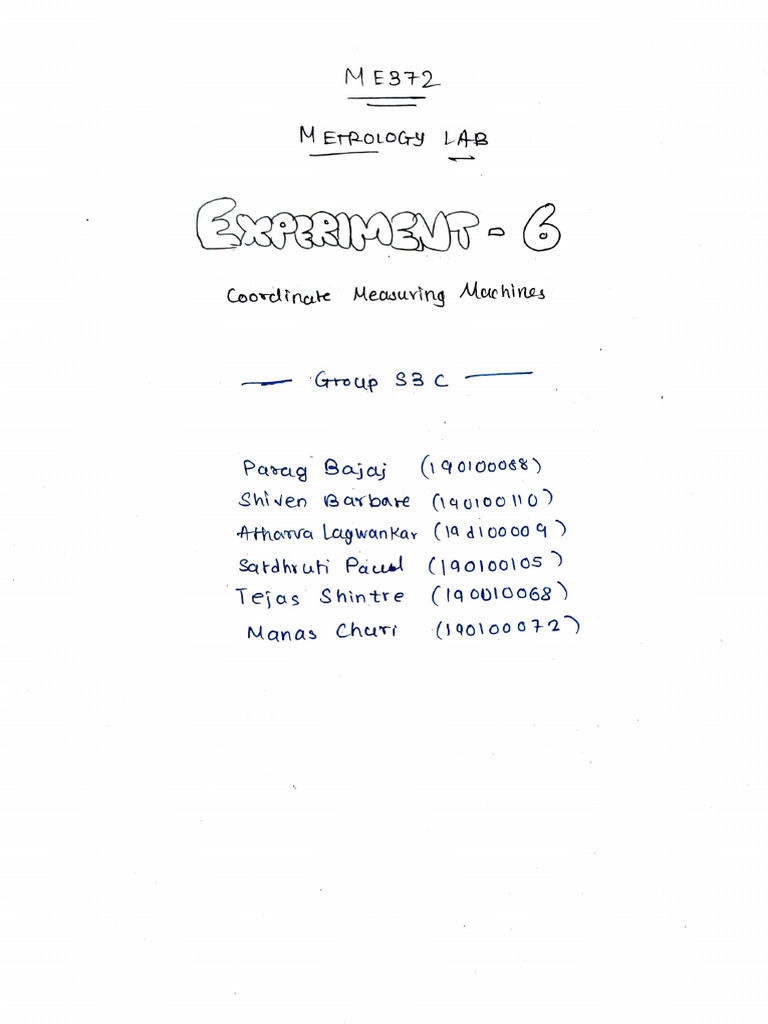 ME372
METROLOGY LAB
EXPERIMENT - 6
Coordinate Measuring Machines
Group S3C
Parag Bajaj (190100088)
Shiven Barbare (190100110)
Atharva Lagwankar (19d100009)
Satdhruti Paul (190100105)
Tejas Shintre (190010068)
Manas Churi (190100072)